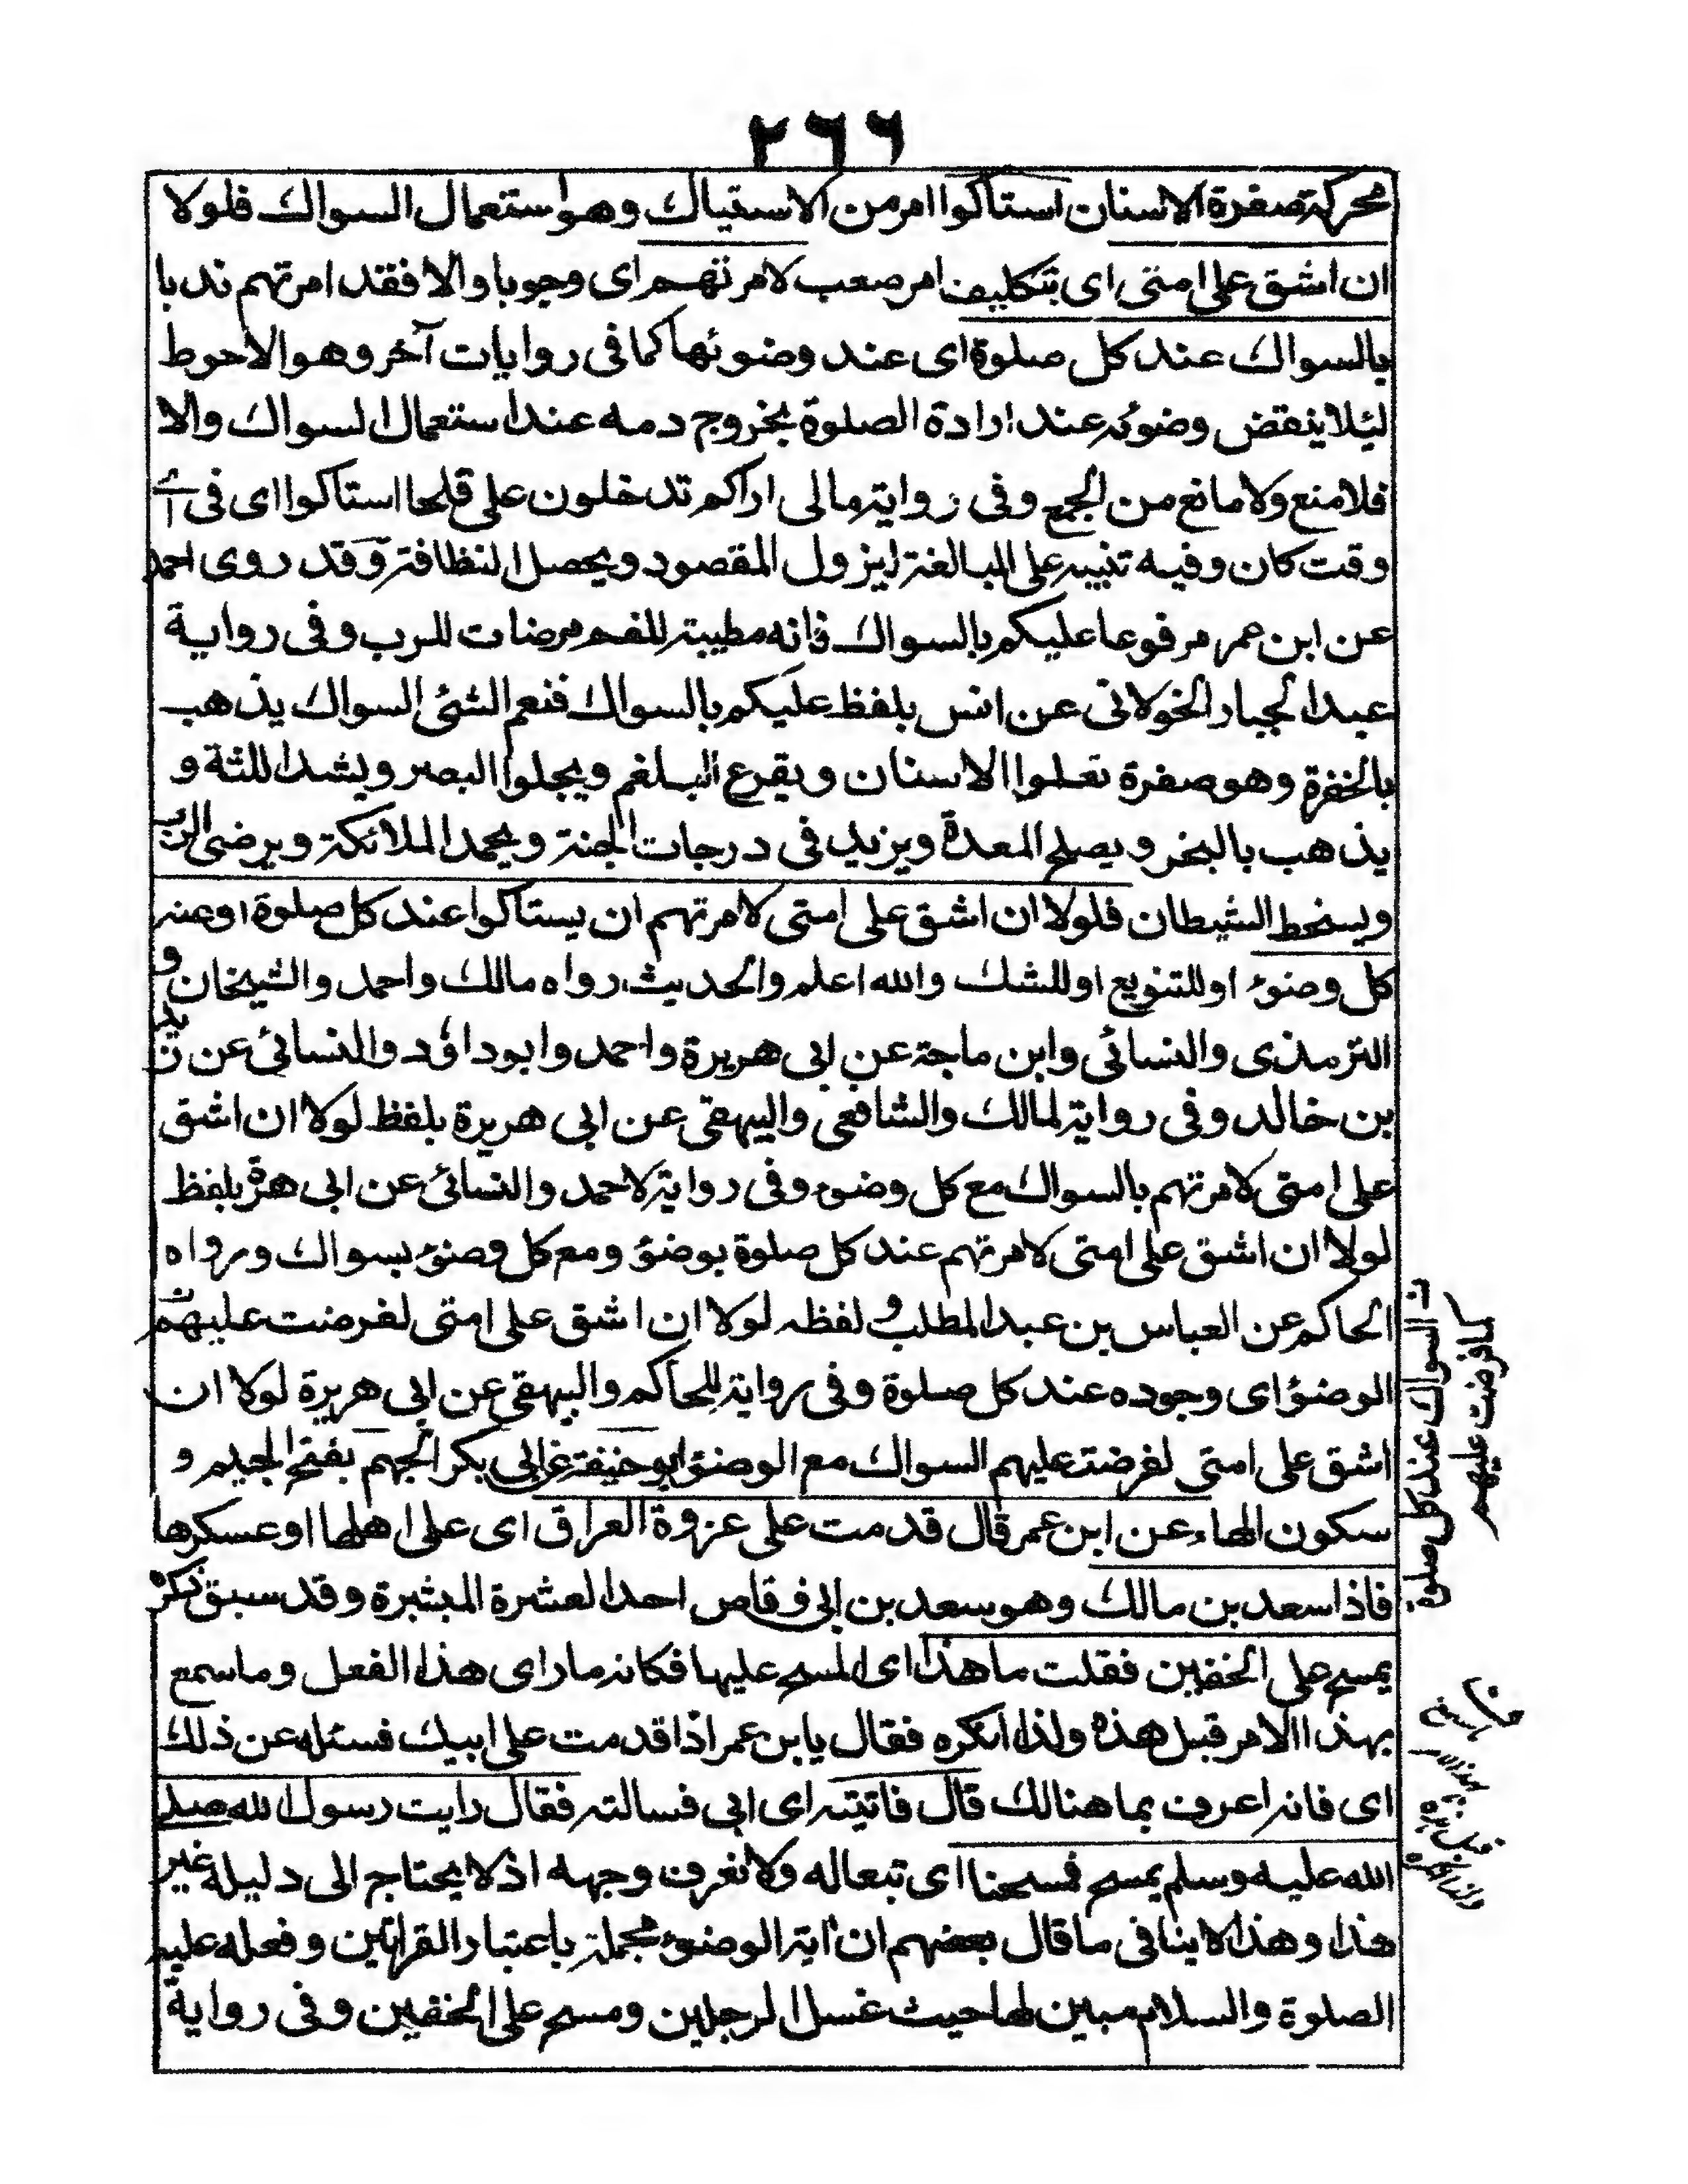 ٢٦٦
محركة صفرة الاسنان استاكوا امر من الاستياك وهو استعمال السواك فلولا
ان اشق على امتى اى بتكليف امر صعب لامرتهم اى وجوبا والا فقد امرتهم ندبا
بالسواك عند كل صلوة اى عند وضوئها كما فى روايات آخر وهو الاحوط
ليئلا ينقض وضوئه عند ارادة الصلوة بخروج دمه عند استعمال السواك والا
فلا منع ولا مانع من الجمع وفى رواية مالى اراكم تدخلون على قلحا استاكوا اى فى اى
وقت كان وفيه تنبيه على المبالغة ليزول المقصود ويحصل النظافة وقد روى احمد
عن ابن عمر مرفوعا عليكم بالسواك فانه مطيبة للفم مرضات للرب وفى رواية
عبد الجبار الخولانى عن انس بلفظ عليكم بالسواك فنعم الشئ السواك يذهب
بالخفرة وهو صفرة تعلوا الاسنان ويقرع البلغم ويجلوا البصر ويشد اللثة و
يذهب بالبخر ويصلح المعدة ويزيد فى درجات الجنة ويحمد الملائكة ويرضى الرب
ويسخط الشيطان فلولا ان اشق على امتى لامرتهم ان يستاكوا عند كل صلوة او عند
كل وضوء او للتنويع او للشك والله اعلم والحديث رواه مالك واحمد والشيخان و
الترمذى والنسائى وابن ماجة عن ابى هريرة واحمد وابو داؤد والنسائى عن زيد
بن خالد وفى رواية لمالك والشافعى والبيهقى عن ابى هريرة بلفظ لولا ان اشق
على امتى لامرتهم بالسواك مع كل وضوء وفى رواية لاحمد والنسائى عن ابى هرة بلفظ
لولا ان اشق على امتى لامرتهم عند كل صلوة بوضوء ومع كل وضوء بسواك ورواه
الحاكم عن العباس بن عبد المطلب ولفظه لولا ان اشق على امتى لفرضت عليهم
الوضوء اى وجوده عند كل صلوة وفى رواية للحاكم والبيهقى عن ابى هريرة لولا ان
اشق على امتى لفرضت عليهم السواك مع الوضوء ابو حنيفة عن ابى بكر الجهم بفتح الجيم و
سكون الهاء عن ابن عمر قال قدمت على عزوة العراق اى على اهلها او عسكرها
فاذا سعد بن مالك وهو سعد بن ابى وقاص احد العشرة المبشرة وقد سبق ذكره
يمسح على الخفين فقلت ما هذا اى المسح عليها فكانه ما راى هذا الفعل وما سمع
بهذا الامر قبل هذه ولذا انكره فقال يا بن عمر اذا قدمت على ابيك فسئله عن ذلك
اى فانه اعرف بما هنالك قال فاتيته اى ابى فسالته فقال رايت رسول الله صلى
الله عليه وسلم يمسح فمسحنا اى تبعا له ولا نعرف وجهه اذ لا يحتاج الى دليله غير
هذا وهذا لا ينافى ما قال بعضهم ان اية الوضوء مجملة باعتبار القراتين وفعله عليه
الصلوة والسلام مبين لها حيث غسل الرجلين ومسح على الخفين وفى رواية
السواك عند كل صلوة
كما فرضت عليهم